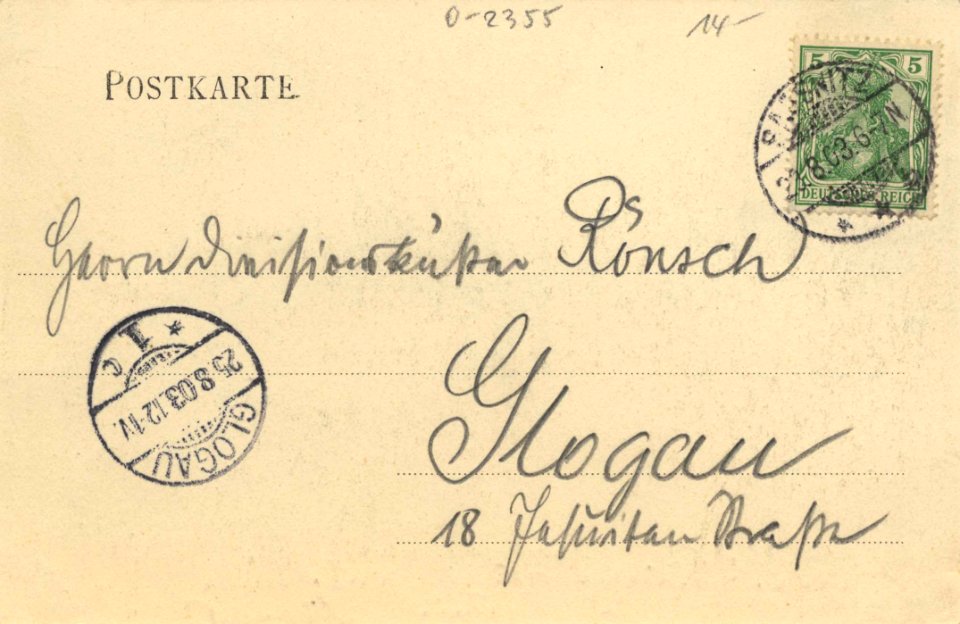 0-2355 14-
POSTKARTE
5 5
SASSNITZ
8.03.6-7N
DEUTSCHES REICH
Herrn Divisionsküster Rönsch
C 1 *
25.8.03.12-1V.
GLOGAU
Glogau
18 Jesuiten Straße